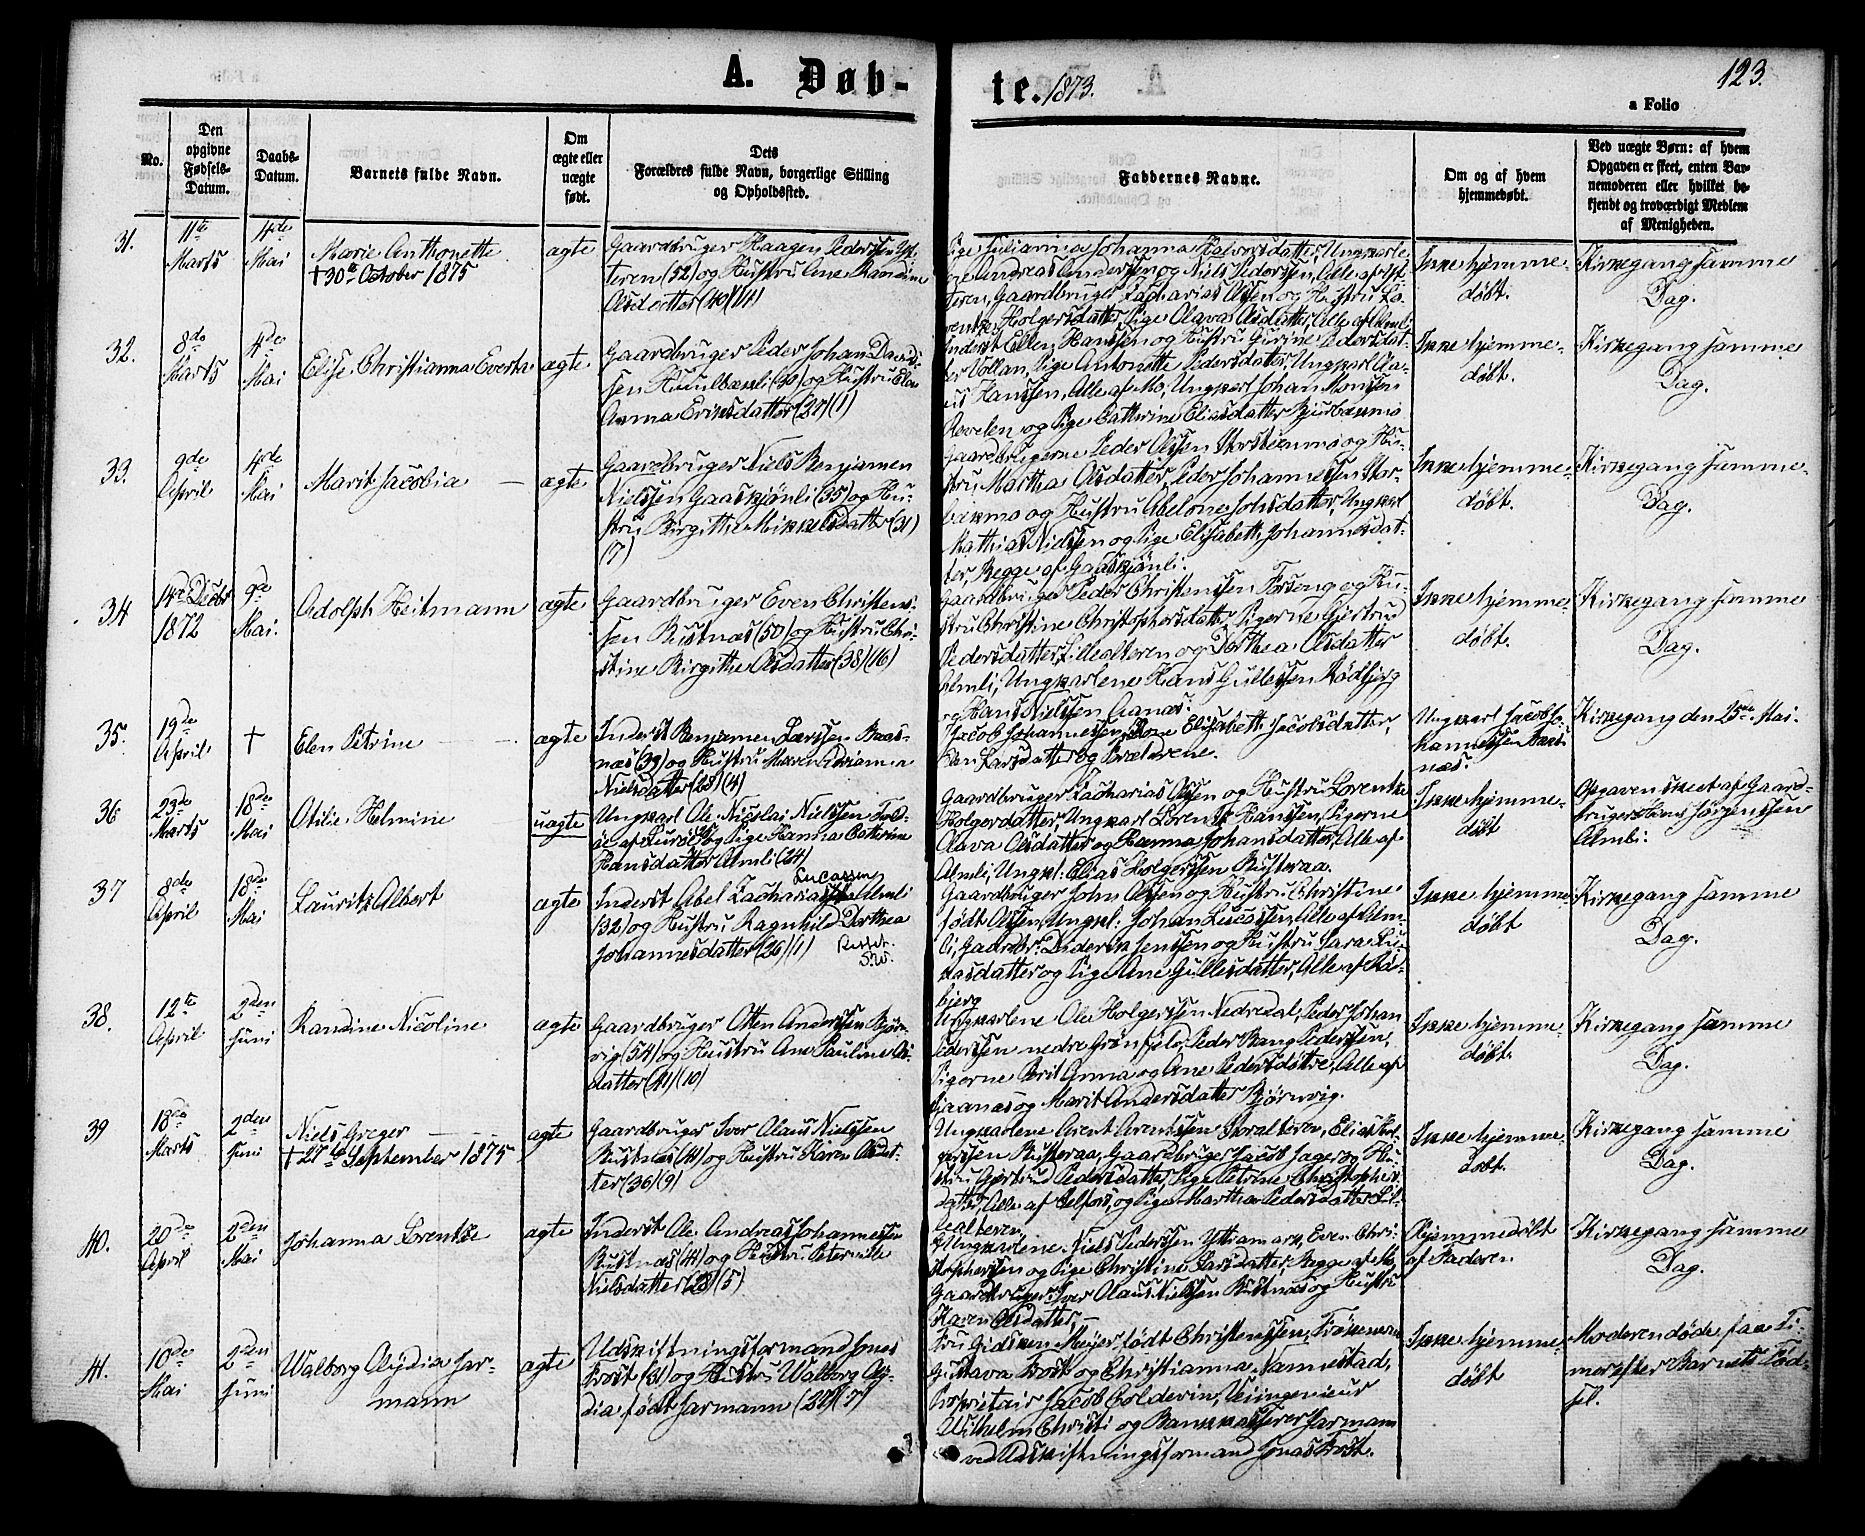 A. Døb-
te. 1873.
123.
a Folio
No.
Den
opgivne
Fødsels-
Datum.
Daabs-
Datum.
Barnets fulde Navn.
Om
ægte eller
uægte
født.
Dets
Forældres fulde Navn, borgerlige Stilling
og Opholdssted.
Faddernes Navne.
Om og af hvem
hjemmedøbt.
Ved uægte Børn: af hvem
Opgaven er skeet, enten Bar-
nemoderen eller hvilket be-
kjendt og troværdigt Medlem
af Menigheden.
31.
11te
Marts
4de
Mai
Marie Anthonette
† 30te October 1875
ægte
Gaardbruger Haagen Pederssen
teren (52) og Hustru Ane Randine
Olsdatter (40) (11)
Pige Julianna Johanna
Andreas Anderssen og Niels Pederssen, Alle af
teren, Gaardbruger Zacharias Olsen og Hustru Lo-
rentze Holgersdatter, Pige Olava Olsdatter, Alle af Almli
Ikke hjemme-
døbt.
Kirkegang samme
Dag.
32.
8de
Marts
4de
Mai
Elise Christianna Everta
ægte
Gaardbruger Peder Johan David-
sen (30) og Hustru Elen
Anna Eriksdatter (27) (1)
Inderst Ellen Hanssen og Hustru Gurine Pedersdat-
ter Vollan, Pige Antonette Pedersdatter, Ungkarl
Hanssen, Alle af Mo, Ungkarl Johan Monssen
og Pige Cathrine Eliasdatter
Ikke hjemme-
døbt.
Kirkegang samme
Dag.
33.
9de
April
4de
Mai
Marit Jacobia
ægte
Gaardbruger Niels Benjamen
Nielssen Gaaskjønli (35) og Hu-
stru Birgitte Mikkelsdatter (31)
(7)
Gaardbrugerne Peder Olssen og Hu-
stru Martha Olsdatter, Peder Johannessen
og Hustru Abelone Johnsdatter, Ungkarl
Mathias Nielssen og Pige Elisabeth Johannesdat-
ter, Begge af Gaaskjønli.
Ikke hjemme-
døbt.
Kirkegang samme
Dag.
34
14de Decbr
1872
9de
Mai.
Adolph Heitmann
ægte
Gaardbruger Even Christens-
sen Bustnæs (50) og Hustru Chri-
stine Birgitte Olsdatter (38) (16)
Gaardbruger Peder Christenssen Forseng og Hu-
stru Christine Christophersdatter, Pigerne Gjertrud
Pedersdatter, Lillealteren og Dorthea Olsdatter
Almli, Ungkarlene Hans Gullessen Rødbjerg
og Hans Nielssen
Ikke hjemme-
døbt.
Kirkegang samme
Dag.
35.
19de
April
†
Elen Petrine
ægte
Inderst Benjamen Larssen Baas-
næs (39) og Hustru Maren Adrianna
Nielsdatter (28) (4)
Jacob Johannessen, Elisabeth Jacobsdatter,
Larsdatter og Forældrene.
Ungkarl Jacob Jo-
hannessen
næs.
Kirkegang den 25de Mai.
36
23de
Marts
18de
Mai
Otilie Helmine
uægte
Ungkarl Ole Nicolai Nielssen
af Lurø og Pige Hanna Catrine
Hansdatter Almli (24)
Gaardbruger Zacharias Olssen og Hustru Lorentze
Holgersdatter, Ungkarl Lorents Hanssen, Pigerne
Olava Olsdatter og Hanna Johansdatter, Alle af
Almli, Ungkl: Elias Holgerssen Rusteraa.
Ikke hjemme-
døbt
Opgaven skeet af Gaard-
bruger Hans Jørgenssen
Almli.
37
8de
April
18de
Mai
Lauritz Albert
ægte
Lucassen
Inderst Abel Zacharias Almli
(32) og Hustru Ragnhild Dorthea
Johannesdatter (26) (1)
Gaardbruger John Olssen og Hustru Christine
født Olssen, Ungkl: Johan Lucassen, Alle af Alm-
li, Gaardbr: Diderik Jenssen og Hustru Sara Lu-
kasdatter og Pige Ane Gullesdatter, Alle af Rød-
bjerg
Ikke hjemme-
døbt
Kirkegang samme
Dag.
38.
12te
April
2den
Juni
Randine Nicoline
ægte
Gaardbruger Otten Anderssen Bjørn-
vig (54) og Hustru Ane Pauline Ols-
datter (41) (10)
Ungkarlene Ole Holgerssen Nedredal, Peder Johan
Pederssen nedre Grønfjeld, Peder Bang Pederssen,
Pigerne Berit Anna og Ane Pedersdøtre, Alle af
og Marit Andersdatter Bjørnvig.
Ikke hjemme-
døbt.
Kirkegang samme
Dag.
39
18de
Marts
2den
Juni
Niels Greger
† 27de September 1875
ægte
Gaardbruger Iver Olaus Nielssen
Bustnæs (41) og Hustru Karen Olsdat-
ter (36) (9)
Ungkarlene Arent Arentssen Storalteren, Elias Hol-
gerssen Rusteraa, Gaardbruger Jacob Jager og Hu-
stru Gjertrud Pedersdatter, Pige Petrine Christophers-
datter, Alle af Selfors, og Pige Martha Pedersdatter Lil-
lealteren.
Ikke hjemme-
døbt.
Kirkegang samme
Dag.
40.
20de
April
2den
Mai
Johanna Lorentze
ægte
Inderst Ole Andreas Johannessen
Bustnæs (41) og Hustru Peternille
Nielsdatter (28) (5)
Ungkarlene Niels Pederssen Ytteramark, Even Chri-
stopherssen og Pige Christine Larsdatter, Begge af Mo,
Gaardbruger Iver Olaus Nielssen Bustnæs og Hustru
Karen Olsdatter. –
Hjemmedøbt
af Faderen
Kirkegang samme
Dag.
41.
10de
Mai
2den
Juni
Walborg Alydia Jar-
mann
ægte
Udskiftningsformand Jonas
Frost (31) og Hustru Walborg Aly-
dia født Jarmann (28) (7)
Fru Gidsken Meyer, født Christenssen, Frøknerne
Gustava Frost og Christianna Nannestad,
Proprietair Jacob Coldevin, Veiingenieur
Wilhelm Christi og Bankkasserer Jarmann
ved Udskiftningsformand Jonas Frost.
Ikke hjemme-
døbt
Moderen døde faa Ti-
mer efter Barnets Fød-
sel.